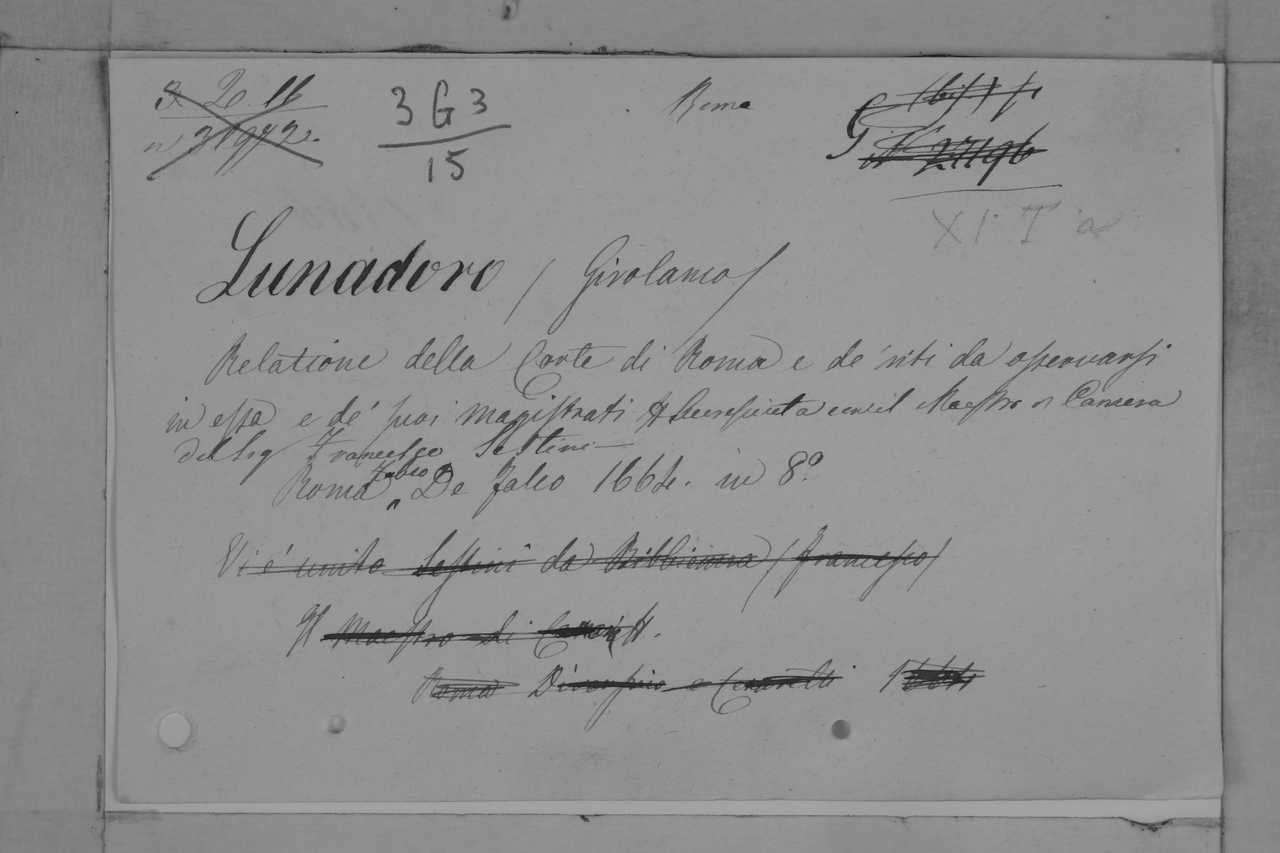 3 G 3
15
Roma
N° 27196
XI. T a
Lunadoro / Girolamo /
Relatione della Corte di Roma e de' riti da osservarsi
in essa e de' suoi magistrati &. Accresciuta con il Maestro di Camera
del Sig Francesco Sestini
Roma Fabio De Falco 1664. in 8°
Vi é unito Sestini da Bibbiena / Francesco /
Il Maestro di Camera &.
Roma e 1664